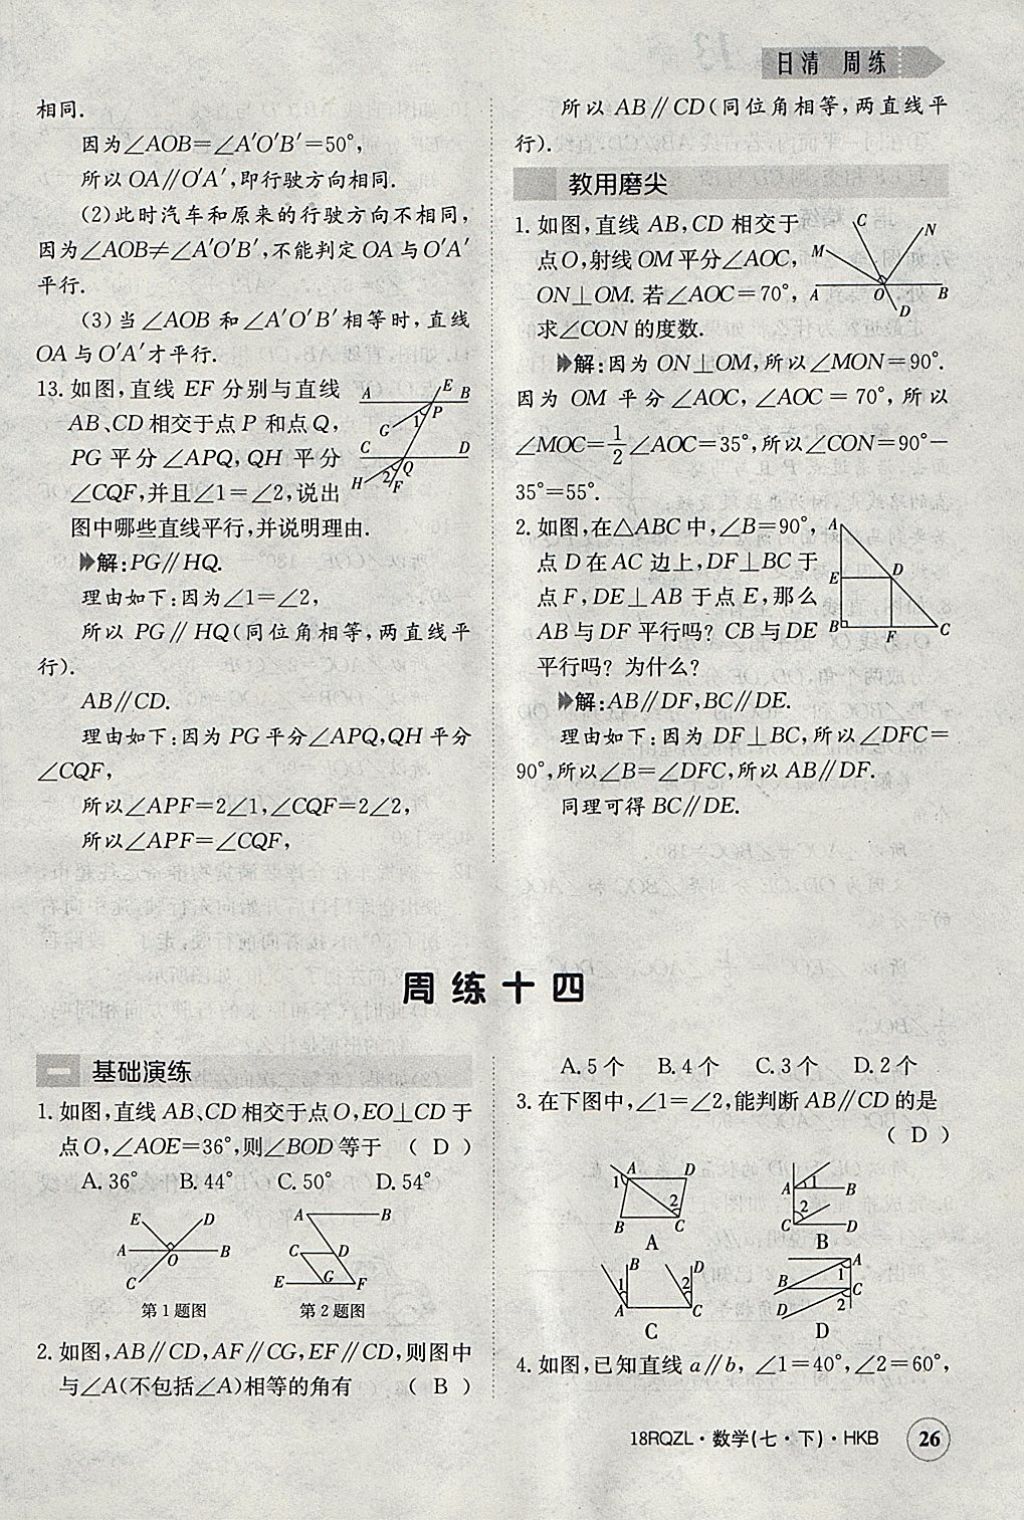 日清 周练
相同.
因为∠AOB=∠A′O′B′=50°,
所以OA∥O′A′,即行驶方向相同.
(2)此时汽车和原来的行驶方向不相同,
因为∠AOB≠∠A′O′B′,不能判定OA与O′A′
平行.
(3)当∠AOB和∠A′O′B′相等时,直线
OA与O′A′才平行.
13.如图,直线 EF 分别与直线
AB、CD相交于点P和点Q,
PG平分∠APQ,QH平分
∠CQF,并且∠1=∠2,说出
图中哪些直线平行,并说明理由.
A E B
1 P
G
C D
Q
H 2 F
解:PG∥HQ.
理由如下:因为∠1=∠2,
所以 PG∥HQ(同位角相等,两直线平
行).
AB∥CD.
理由如下:因为PG平分∠APQ,QH平分
∠CQF,
所以∠APF=2∠1,∠CQF=2∠2,
所以∠APF=∠CQF,
所以AB∥CD(同位角相等,两直线平
行).
教用磨尖
1.如图,直线 AB,CD 相交于
点O,射线OM平分∠AOC,
ON⊥OM.若∠AOC=70°,
求∠CON的度数.
C N
M
A O B
D
解:因为ON⊥OM,所以∠MON=90°.
因为 OM 平分∠AOC,∠AOC=70°,所以
∠MOC=1/2∠AOC=35°,所以∠CON=90°-
35°=55°.
2.如图,在△ABC中,∠B=90°,
点D在AC边上,DF⊥BC于
点F,DE⊥AB于点E,那么
AB与DF平行吗? CB与DE
平行吗? 为什么?
A
E D
B F C
解:AB∥DF,BC∥DE.
理由如下:因为DF⊥BC,所以∠DFC=
90°,所以∠B=∠DFC,所以AB∥DF.
同理可得BC∥DE.
周练十四
一 基础演练
1.如图,直线AB、CD相交于点O,EO⊥CD于
点O,∠AOE=36°,则∠BOD等于 ( D )
A.36° B.44° C.50° D.54°
E D
A O B
C
第1题图
A B
C D
E G F
第2题图
2.如图,AB∥CD,AF∥CG,EF∥CD,则图中
与∠A(不包括∠A)相等的角有 ( B )
A.5个 B.4个 C.3个 D.2个
3.在下图中,∠1=∠2,能判断AB∥CD的是
( D )
A D
1 2
B C
A
A 1 B
2
C D
B
B D
1 2
A C
C
A
B 1 C
D 2
D
4.如图,已知直线a∥b,∠1=40°,∠2=60°,
18RQZL·数学(七·下)·HKB 26